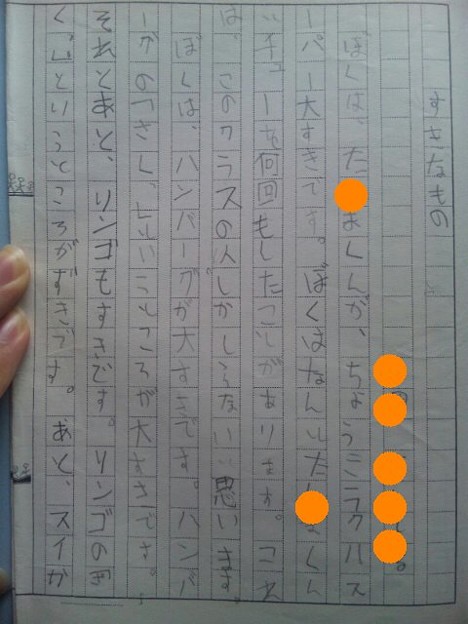 すきなもの
ぼくは、たまくんが、ちょうミラクルス
ーパー大すきです。ぼくはなんとたまくん
とチューを何回もしたことがあります。これ
は、このクラスの人しかしらないと思います。
ぼくは、ハンバーグが大すきです。ハンバ
ーグのつさし、というところが大すきです。
それとあと、リンゴもすきです。リンゴのさ
く、というところがずきです。あと、スイか